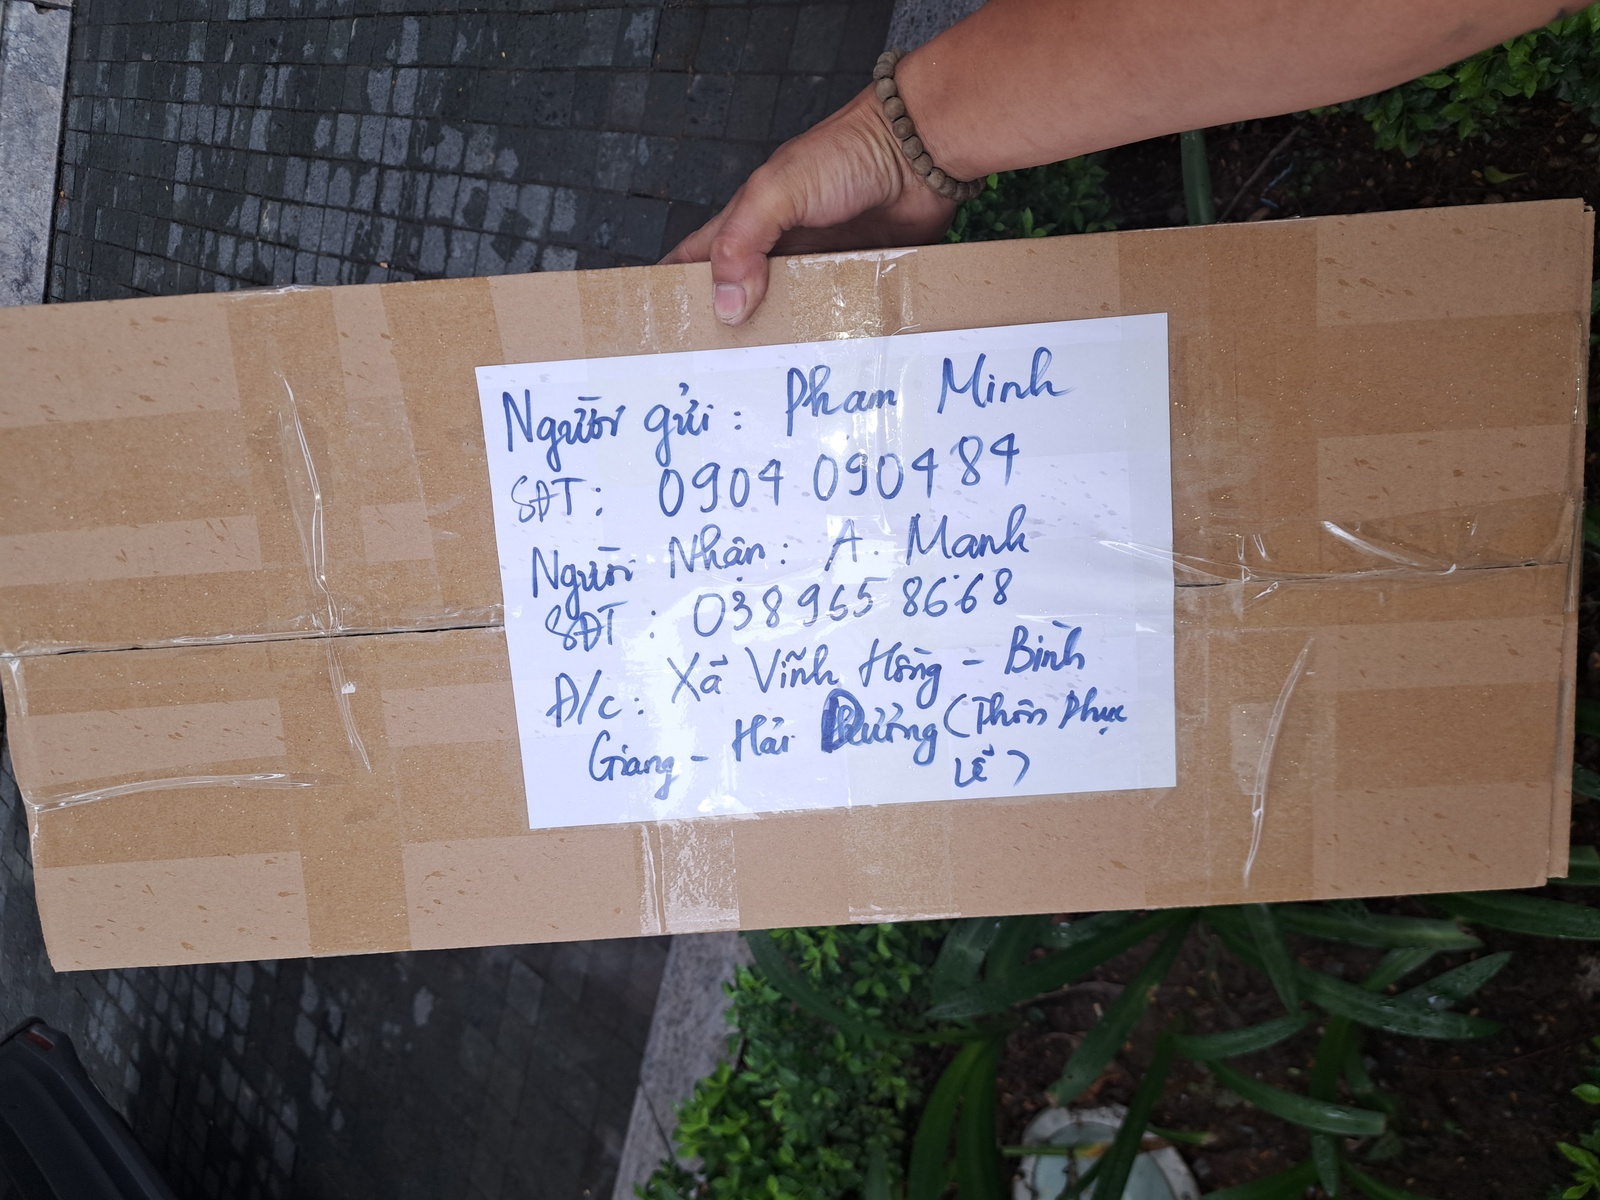 Người gửi: Phạm Minh
SĐT: 0904 090484
Người Nhận: A. Mạnh
SĐT: 038 965 8668
Đ/c: Xã Vĩnh Hồng - Bình
Giang - Hải Dương (Thôn Phục
Lễ)